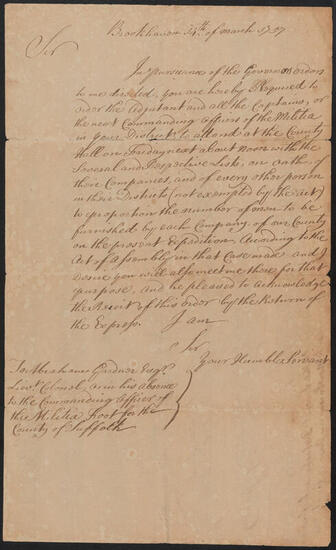 Brookhaven 14th of march 1757
Sir
In pursuance of the Governors orders
to me directed, you are hereby Required to
order the Adjutant and all the Captains, or
the next Commanding officers of the Militia
in your District, to attend at the County
Hall on Fryday next about noon with the
Several and Respective Lists, on oath of
their Companies, and of every other person
in their Districts (not exempted by the Act)
to proportion the number of men to be
furnished by each Company of our County
on the present Expedition, According to the
Act of Assembly in that Case made and I
desire you will also meet me there for that
purpose, and be pleased to acknowledge
the Receit of this order by the Return of
the Express. I am
Sir
Your Humble Servant
To Abraham Gardner Esqr.
Lievt. Colonel, or in his absence
to the Commanding officer of
the Militia Foot for the
County of Suffolk